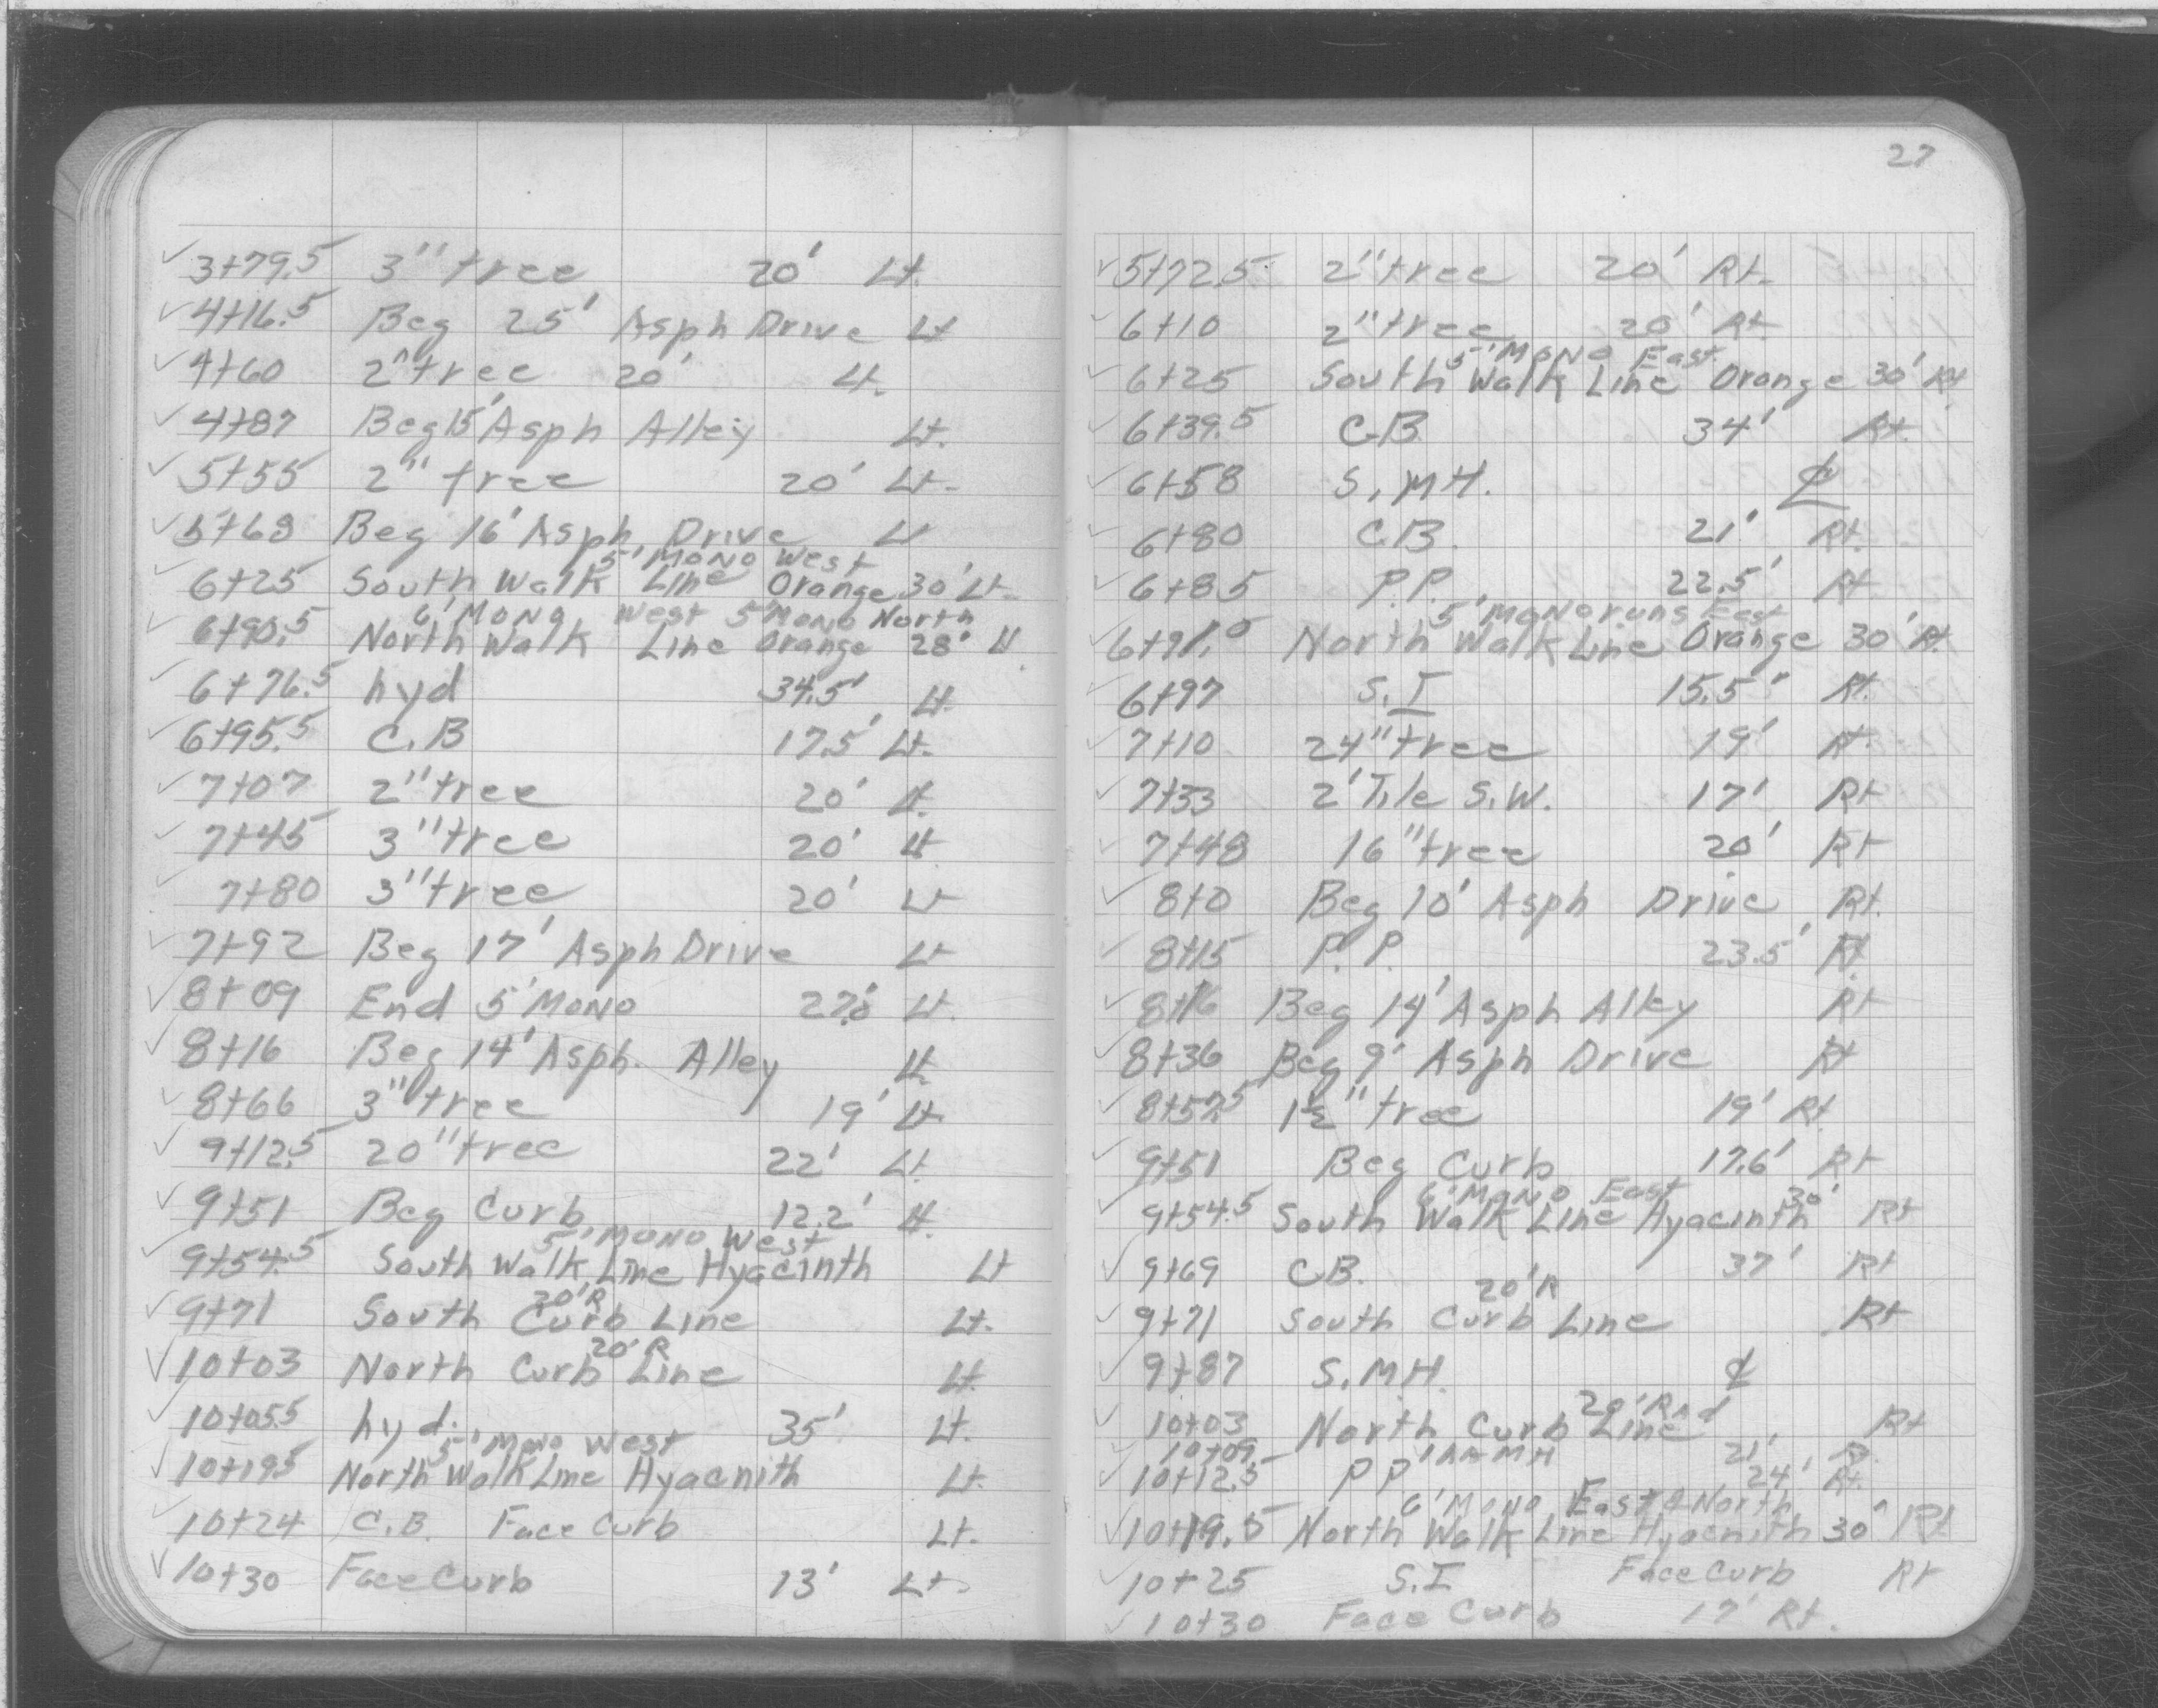 27
3+79.5 3" tree 20' Lt.
4+16.5 Beg 25' Asph Drive Lt
4+60 2" tree 20' Lt.
4+87 Beg 15' Asph Alley Lt.
5+55 2" tree 20' Lt.
5+68 Beg 16' Asph. Drive Lt
5' MONO West
6+25 South Walk Line Orange 30' Lt.
6' MONO West 5' MONO North
6+90.5 North Walk Line Orange 28' Lt.
6+76.5 hyd 34.5' Lt.
6+95.5 C.B 17.5' Lt.
7+07 2" tree 20' Lt.
7+45 3" tree 20' Lt
7+80 3" tree 20' Lt
7+92 Beg 17' Asph Drive Lt
8+09 End 5' MONO Lt.
8+16 Beg 14' Asph. Alley Lt.
8+66 3" tree 19' Lt.
9+12.5 20" tree 22' Lt.
9+51 Beg Curb 12.2' Lt.
5' MONO West
9+54.5 South Walk Line Hyacinth Lt
20' R
9+71 South Curb Line Lt.
20' R
10+03 North Curb Line Lt.
10+05.5 hyd. 35' Lt.
5' MONO West
10+19.5 North Walk Line Hyacnith Lt.
10+24 C.B. Face Curb Lt.
10+30 Face Curb 13' Lt.
5+72.5 2" tree 20' Rt.
6+10 2" tree 20' Rt
5' MONO East
6+25 South Walk Line Orange 30' Rt
6+39.5 C.B. 34' Rt.
6+58 S.MH. ℄
6+80 C.B. 21' Rt.
6+85 P.P. 22.5' Rt
5' MONO runs East
North Walk Line Orange 30' Rt.
6+97 S.I 15.5' Rt.
7+10 24" tree 19' Rt.
7+33 2' Tile S.W. 17' Rt
7+48 16" tree 20' Rt
8+0 Beg 10' Asph Drive Rt.
8+15 P.P. 23.5' Rt.
8+16 Beg 14' Asph Alley Rt
8+36 Beg 9' Asph Drive Rt
8+52.5 1½" tree 19' Rt.
9+51 Beg Curb 17.6' Rt
6' MONO East 30'
9+54.5 South Walk Line Hyacinth Rt
9+69 C.B. 37' Rt
20' R
9+71 South Curb Line Rt
9+87 S.M.H. ℄
20' Rad
10+03 North Curb Line Rt
10+09 MH 21' R.
10+12.5 P P 24' Rt.
6' MONO East & North
10+19.5 North Walk Line Hyacnith 30' Rt
10+25 S.I Face Curb Rt
10+30 Face Curb 17' Rt.